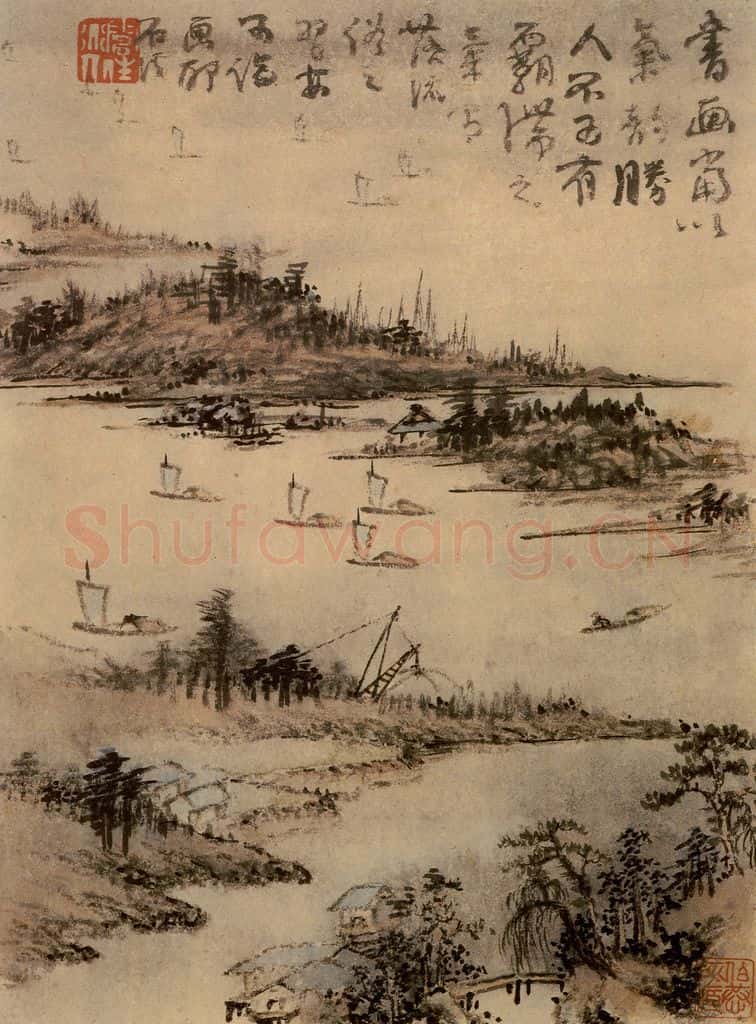 書画當以
氣韻勝
人不可有
霸滯之
落流
俗之
習安
可論
画耶
Shufawang.CN